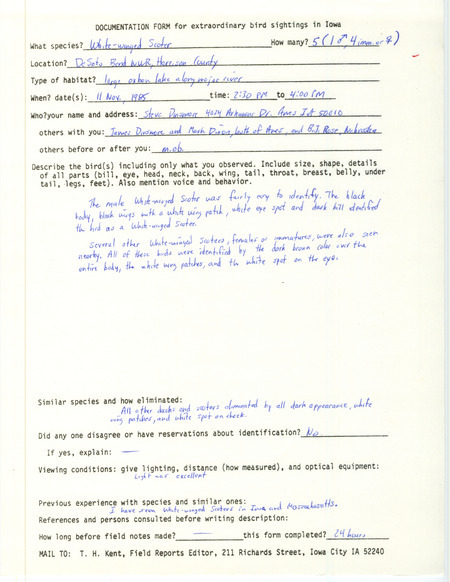 DOCUMENTATION FORM for extraordinary bird sightings in Iowa
What species? White-winged Scoter How many? 5 (1 ♂, 4 imm. or ♀)
Location? DeSoto Bend NWR, Harrison County
Type of habitat? large oxbow lake along major river
When? date(s): 11 Nov., 1985 time: 2:30 PM to 4:00 PM
Who? your name and address: Steve Dinsmore 4024 Arkansas Dr. Ames IA 50010
others with you: James Dinsmore and Mark Dixon, both of Ames, and B.J. Rose, Nebraska
others before or after you: m.ob.
Describe the bird(s) including only what you observed. Include size, shape, details
of all parts (bill, eye, head, neck, back, wing, tail, throat, breast, belly, under
tail, legs, feet). Also mention voice and behavior.
The male White-winged Scoter was fairly easy to identify. The black
body, black wings with a white wing patch, white eye spot and dark bill identified
the bird as a White-winged Scoter.
Several other White-winged Scoters, females or immatures, were also seen
nearby. All of these birds were identified by the dark brown color over the
entire body, the white wing patches, and the white spot on the eye.
Similar species and how eliminated:
All other ducks and scoters eliminated by all dark appearance, white
wing patches, and white spot on cheek.
Did any one disagree or have reservations about identification? No
If yes, explain: —
Viewing conditions: give lighting, distance (how measured), and optical equipment:
Light was excellent
Previous experience with species and similar ones:
I have seen White-winged Scoters in Iowa and Massachusetts.
References and persons consulted before writing description:
—
How long before field notes made? — this form completed? 24 hours
MAIL TO: T. H. Kent, Field Reports Editor, 211 Richards Street, Iowa City IA 52240